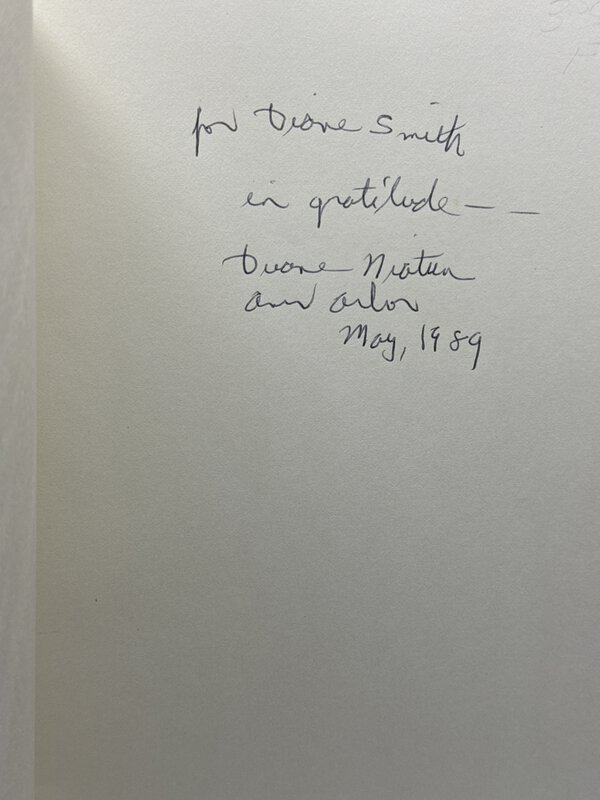 for Diane Smith
in gratitude — —
Duane Niatum
ann arbor
May, 1989